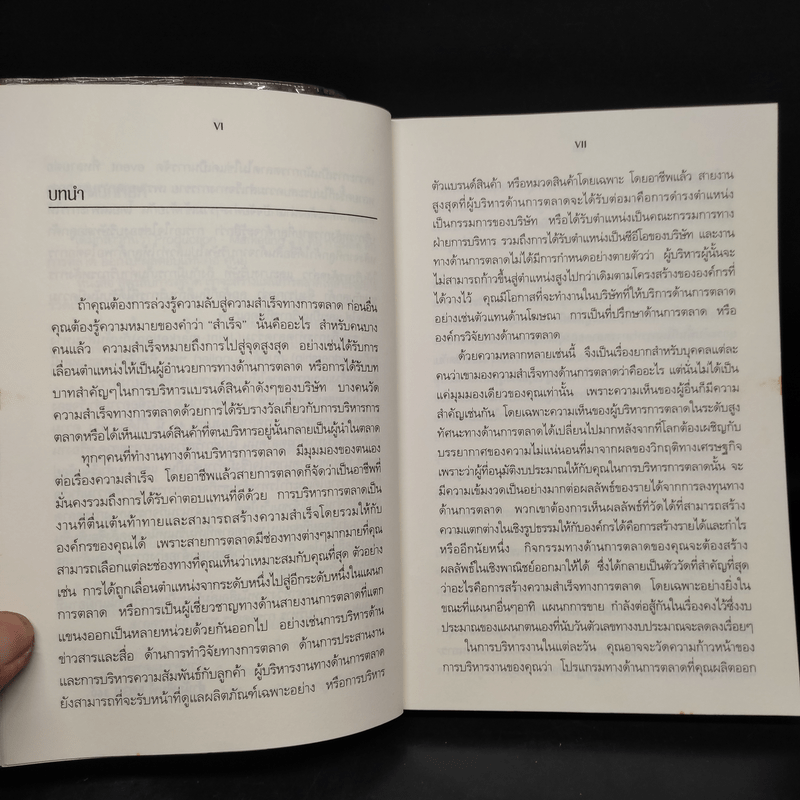 VI
บทนำ
ถ้าคุณต้องการล่วงรู้ความลับสู่ความสำเร็จทางการตลาด ก่อนอื่น
คุณต้องรู้ความหมายของคำว่า "สำเร็จ" นั้นคืออะไร สำหรับคนบาง
คนแล้ว ความสำเร็จหมายถึงการไปสู่จุดสูงสุด อย่างเช่นได้รับการ
เลื่อนตำแหน่งให้เป็นผู้อำนวยการทางการตลาด หรือการได้รับบท
บาทสำคัญๆในการบริหารแบรนด์สินค้าดังๆของบริษัท บางคนวัด
ความสำเร็จทางการตลาดด้วยการได้รับรางวัลเกี่ยวกับการบริหารการ
ตลาดหรือได้เห็นแบรนด์สินค้าที่ตนบริหารอยู่นั้นกลายเป็นผู้นำในตลาด
ทุกๆคนที่ทำงานทางด้านบริหารการตลาด มีมุมมองของตนเอง
ต่อเรื่องความสำเร็จ โดยอาชีพแล้วสายการตลาดก็จัดว่าเป็นอาชีพที่
มั่นคงรวมถึงการได้รับค่าตอบแทนที่ดีด้วย การบริหารการตลาดเป็น
งานที่ตื่นเต้นท้าทายและสามารถสร้างความสำเร็จโดยรวมให้กับ
องค์กรของคุณได้ เพราะสายการตลาดมีช่องทางต่างๆมากมายที่คุณ
สามารถเลือกแต่ละช่องทางที่คุณเห็นว่าเหมาะสมกับคุณที่สุด ตัวอย่าง
เช่น การได้ถูกเลื่อนตำแหน่งจากระดับหนึ่งไปสู่อีกระดับหนึ่งในแผนก
การตลาด หรือการเป็นผู้เชี่ยวชาญทางด้านสายงานการตลาดที่แตก
แขนงออกเป็นหลายหน่วยด้วยกันออกไป อย่างเช่นการบริหารด้าน
ข่าวสารและสื่อ ด้านการทำวิจัยทางการตลาด ด้านการประสานงาน
และการบริหารความสัมพันธ์กับลูกค้า ผู้บริหารงานทางด้านการตลาด
ยังสามารถที่จะรับหน้าที่ดูแลผลิตภัณฑ์เฉพาะอย่าง หรือการบริหาร
VII
ตัวแบรนด์สินค้า หรือหมวดสินค้าโดยเฉพาะ โดยอาชีพแล้ว สายงาน
สูงสุดที่ผู้บริหารด้านการตลาดจะได้รับต่อมาคือการดำรงตำแหน่ง
เป็นกรรมการของบริษัท หรือได้รับตำแหน่งเป็นคณะกรรมการทาง
ฝ่ายการบริหาร รวมถึงการได้รับตำแหน่งเป็นซีอีโอของบริษัท และงาน
ทางด้านการตลาดไม่ได้มีการกำหนดอย่างตายตัวว่า ผู้บริหารผู้นั้นจะ
ไม่สามารถก้าวขึ้นสู่ตำแหน่งสูงไปกว่าเดิมตามโครงสร้างขององค์กรที่
ได้วางไว้ คุณมีโอกาสที่จะทำงานในบริษัทที่ให้บริการด้านการตลาด
อย่างเช่นตัวแทนด้านโฆษณา การเป็นที่ปรึกษาด้านการตลาด หรือ
องค์กรวิจัยทางด้านการตลาด
ด้วยความหลากหลายเช่นนี้ จึงเป็นเรื่องยากสำหรับบุคคลแต่ละ
คนว่าเขามองความสำเร็จทางการตลาดว่าคืออะไร แต่นั่นไม่ได้เป็น
แค่มุมมองเดียวของคุณเท่านั้น เพราะความเห็นของผู้อื่นก็มีความ
สำคัญเช่นกัน โดยเฉพาะความเห็นของผู้บริหารการตลาดในระดับสูง
ทัศนะทางด้านการตลาดได้เปลี่ยนไปมากหลังจากที่โลกต้องเผชิญกับ
บรรยากาศของความไม่แน่นอนที่มาจากผลของวิกฤติทางเศรษฐกิจ
เพราะว่าผู้ที่อนุมัติงบประมาณให้กับคุณในการบริหารการตลาดนั้น จะ
มีความเข้มงวดเป็นอย่างมากต่อผลลัพธ์ของรายได้จากการลงทุนทาง
ด้านการตลาด พวกเขาต้องการเห็นผลลัพธ์ที่วัดได้ที่สามารถสร้าง
ความแตกต่างในเชิงรูปธรรมให้กับองค์กรได้คือการสร้างรายได้และกำไร
หรืออีกนัยหนึ่ง กิจกรรมทางด้านการตลาดของคุณจะต้องสร้าง
ผลลัพธ์ในเชิงพาณิชย์ออกมาให้ได้ ซึ่งได้กลายเป็นตัววัดที่สำคัญที่สุด
ว่าอะไรคือการสร้างความสำเร็จทางการตลาด โดยเฉพาะอย่างยิ่งใน
ขณะที่แผนกอื่นๆอาทิ แผนกการขาย กำลังต่อสู้กันในเรื่องคงไว้ซึ่งงบ
ประมาณของแผนกตนเองที่นับวันตัวเลขทางงบประมาณจะลดลงเรื่อยๆ
ในการบริหารงานในแต่ละวัน คุณอาจจะวัดความก้าวหน้าของ
การบริหารงานของคุณว่า โปรแกรมทางด้านการตลาดที่คุณผลิตออก